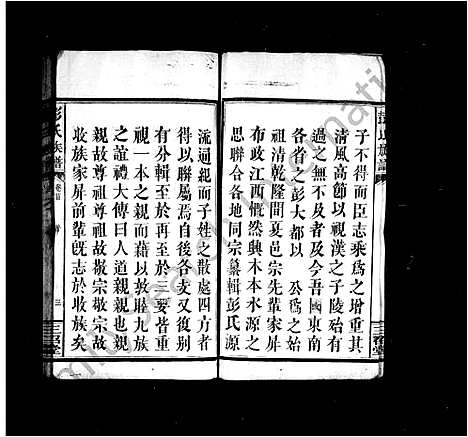 子不得而臣志乘爲之增重其
清風高節以視漢之子陵殆有
過之無不及者及今吾國東南
各省之彭大都以 公爲之始
祖清乾隆間夏邑宗先輩家屏
布政江西慨然興木本水源之
思聯合各地同宗纂輯彭氏源
流迴紀而子姓之散處四方者
得以聯屬焉自後各支又復別
有分輯至於再至於三要皆重
視一本之親而藉以敦睦九族
之誼禮大傳曰人道親親也親
親故尊祖尊祖故敬宗敬宗故
收族家屏前輩旣志於收族矣
彭氏族譜
卷首
三